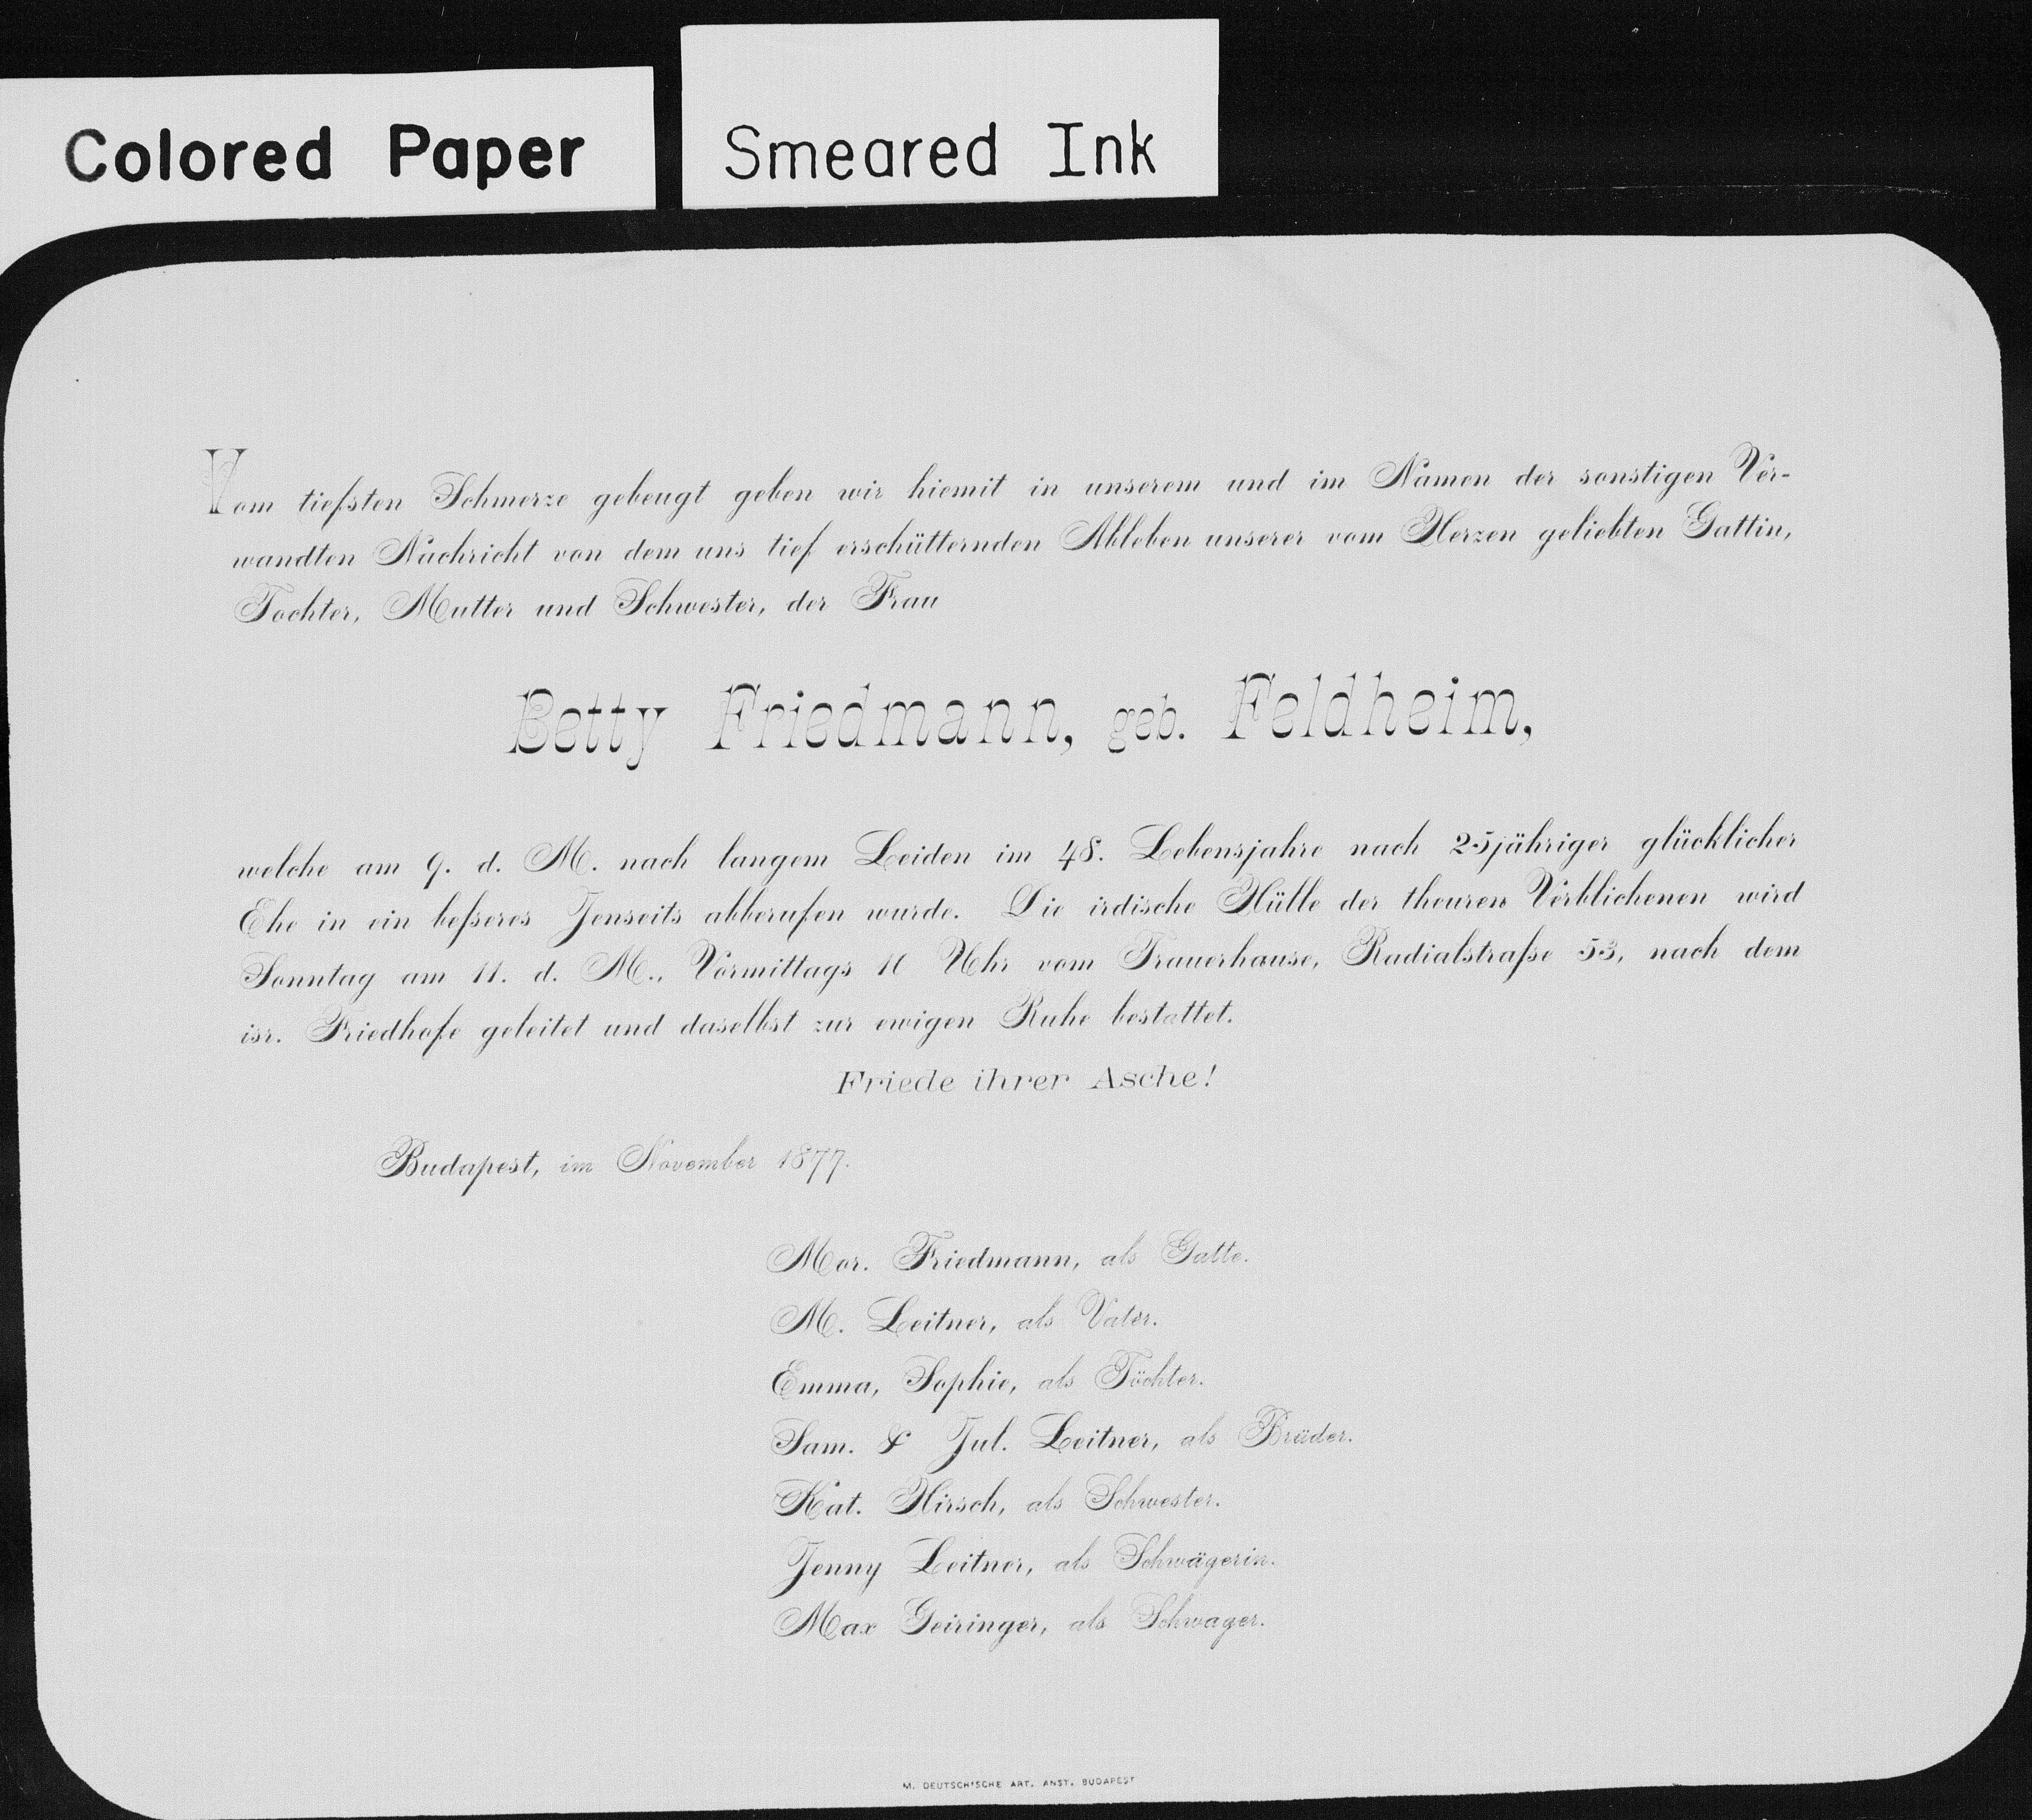 Colored Paper
Smeared Ink
Vom tiefsten Schmerze gebeugt geben wir hiemit in unserem und im Namen der sonstigen Ver-
wandten Nachricht von dem uns tief erschütternden Ableben unserer vom Herzen geliebten Gattin,
Tochter, Mutter und Schwester, der Frau
Betty Friedmann, geb. Feldheim,
welche am 9. d. M. nach langem Leiden im 48. Lebensjahre nach 25jähriger glücklicher
Ehe in ein beßeres Jenseits abberufen wurde. Die irdische Hülle der theuren Verblichenen wird
Sonntag am 11. d. M., Vormittags 10 Uhr vom Trauerhause, Radialstraße 53, nach dem
isr. Friedhofe geleitet und daselbst zur ewigen Ruhe bestattet.
Friede ihrer Asche!
Budapest, im November 1877.
Mor. Friedmann, als Gatte.
M. Leitner, als Vater.
Emma, Sophie, als Töchter.
Sam. & Jul. Leitner, als Brüder.
Kat. Hirsch, als Schwester.
Jenny Leitner, als Schwägerin.
Max Geiringer, als Schwager.
M. DEUTSCH'SCHE ART. ANST. BUDAPEST